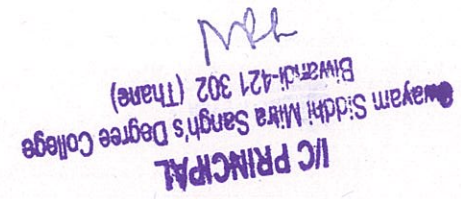 I/C PRINCIPAL
Swayam Siddhi Mitra Sangh's Degree College
Biwandi-421 302 (Thane)